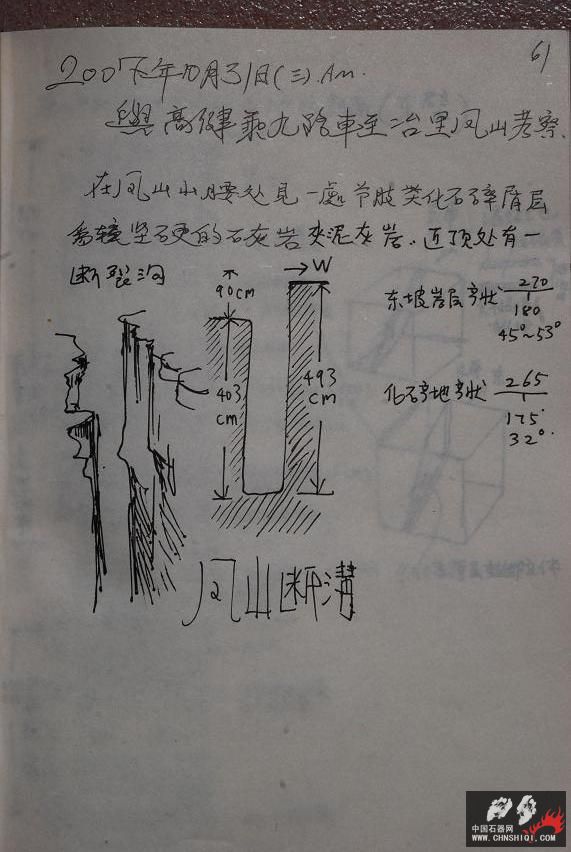 61
2007年10月31日(三).Am.
與高健乘九路車至冶里凤山考察.
在凤山山腰处見一處节肢类化石碎屑层
為较坚硬的石灰岩夾泥灰岩.近顶处有一
断裂沟
90cm
→W
403
cm
493
cm
东坡岩层产状 270
180
45°~53°
化石产地产状 265
175°
32°.
凤山断溝
中国石器网
WWW.CHNSHIQI.COM